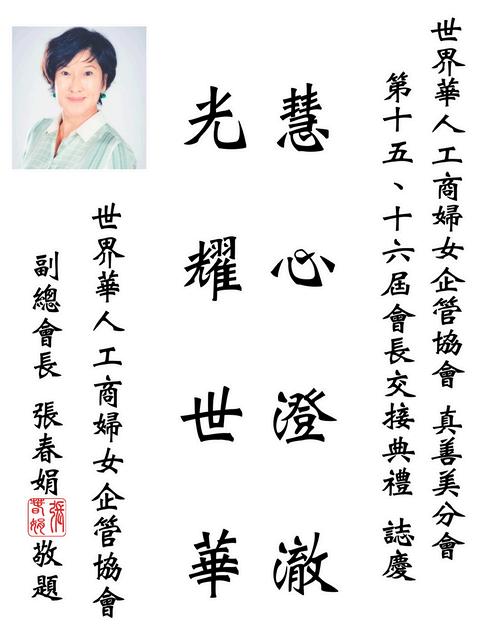 世界華人工商婦女企管協會 真善美分會
第十五、十六屆會長交接典禮 誌慶
慧心澄澈
光耀世華
世界華人工商婦女企管協會
副總會長 張春娟 敬題
張春娟